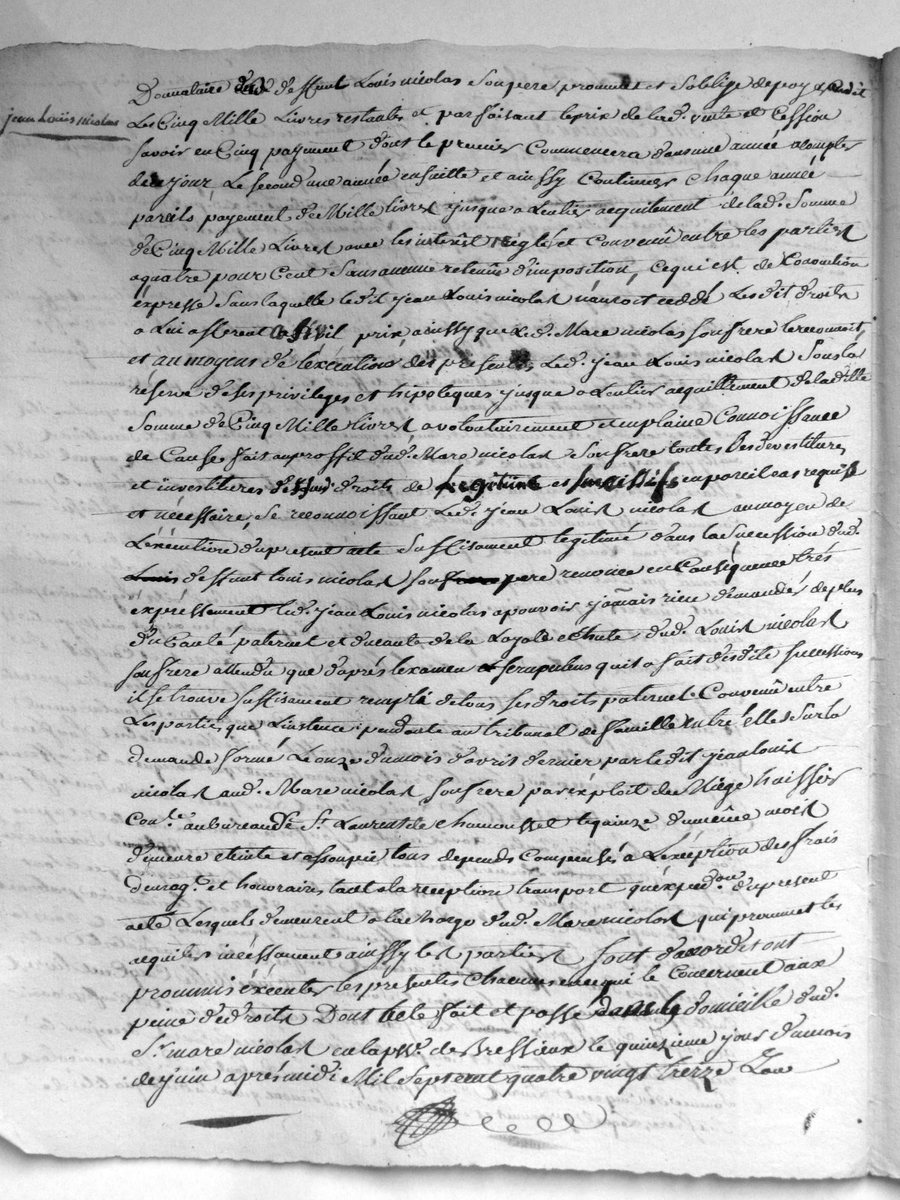 jean Louis nicolas
Donnataire dud. deffunt Louis nicolas son pere prommet et soblige de payer audit
Les Cinq Mille Livres restantes et parfaisant le prix de lad. vente et Cession
savoir en Cinq payement dont le premier Commencera dans une année a compter
de ce jour Le second une année ensuitte et ainssy Continuer chaque année
pareils payement de Mille livres jusque a Lentier acquitement de lad. Somme
de Cinq Mille Livres avec les interêt réglés et convenu entre les parties
a quatre pour Cent sans aucune retenue d'imposition, ce qui est de Convention
expresse sans laquelle le dit jean Louis nicolas n'auroit ceddé Les dit droits
a Lui afferent a si vil prix ainssy que Led. Marc nicolas son frere le reconnoit,
et au moyens de Lexecutions des presentes Led. jean Louis nicolas sous la
réserve de ses privileges et hipoteques jusque a Lentier acquittement de lad.
Somme de Cinq Mille livres a volontairement en plaine Connoissance
de Cause fait au proffit dud. Marc nicolas son frere toutes Les devestitures
et investitures desd. droits de Legitime et successifs en pareil cas requis
et nécessaire, se reconnoissant Led. jean Louis nicolas au moyen de
L'éxécution du present acte suffisament legitimé dans la succession dud.
Louis deffunt louis nicolas son pere renonce en Conséquence trés
éxpressement led. jean Louis nicolas a pouvoir jamais rien demander de plus
du Cauté paternel et du cauté de la dud. Louis nicolas
son frere attendu que d'aprés Lexamen scrupuleux quil a fait desdite successions
il se trouve suffisament rempli de tous ses droits paternel. Convenu entre
Les parties que L'instence pendente au tribunal de famille entre Elles sur la
demande formé Le onze du mois d'avril dernier par le dit jean louis
nicolas aud. Marc nicolas son frere par exploit de Miége huissier
Con.le au bureau de St. Laurent de chamousset le quinze du même mois
demeure eteinte et assoupie tous depends Compensés a L'exception des frais
et honoraires tant a la reception transport quéxpedon. du present
acte Lesquels demeurent a la charge dud. Marc nicolas qui prommet les
acquiter incéssament ainssy les parties sont d'accord et ont
prommis éxécuter les presentes chacunes en ce qui le Concernent aux
peine de droits Dont acte fait et passé dans le domicille dud.
St. marc nicolas en la psse. de Bressieux le quinzieme jour du mois
de juin aprés midi Mil sept cent quatre vingt treize L'an